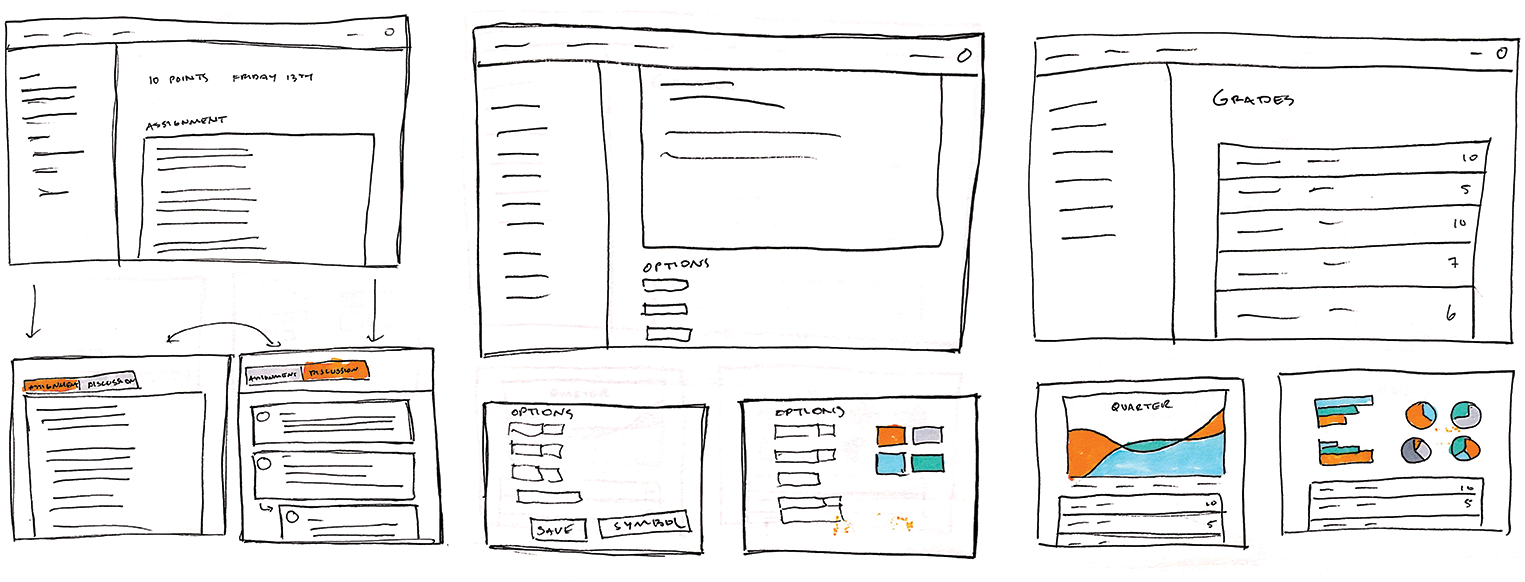 10 POINTS FRIDAY 13TH
ASSIGNMENT
ASSIGNMENT DISCUSSION
ASSIGNMENT DISCUSSION
OPTIONS
OPTIONS
SAVE SYMBOL
OPTIONS
GRADES
10
5
10
7
6
QUARTER
10
5
10
5